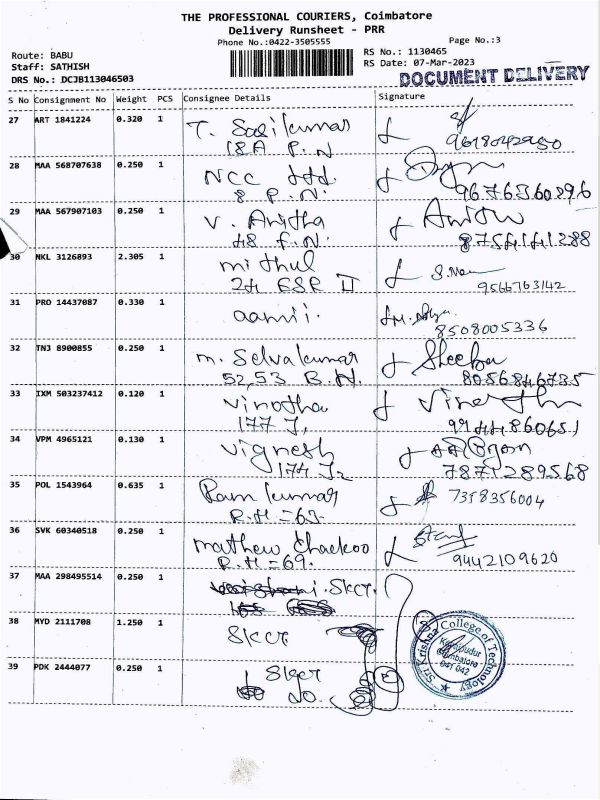 THE PROFESSIONAL COURIERS, Coimbatore
Delivery Runsheet - PRR
Phone No.:0422-3505555
Page No.:3
Route: BABU
RS No.: 1130465
Staff: SATHISH
RS Date: 07-Mar-2023
DRS No.: DCJB113046503
DOCUMENT DELIVERY
S No Consignment No Weight PCS Consignee Details Signature
27 ART 1841224 0.320 1 T. Sasikumar
18A P.N 9618042950
28 MAA 568707638 0.250 1 NCC Ltd.
8 P.N. 9676360296
29 MAA 567907103 0.250 1 V. Anitha
48 F.N. 8754141288
30 NKL 3126893 2.305 1 mithul
24 ESR II 9566763142
31 PRO 14437087 0.330 1 aamii.
8508005336
32 TNJ 8900855 0.250 1 m. Selvakumar Sheeba
52,53 B.N. 8056846735
33 IXM 503237412 0.120 1 Vinotha
177 J, 9944860651
34 VPM 4965121 0.130 1 Vignesh
174 J2 7871289568
35 POL 1543964 0.635 1 Ram kumar 7358356004
R.H=63.
36 SVK 60340518 0.250 1 mathew Chackoo
R.H=69. 9442109620
37 MAA 298495514 0.250 1 SKCT.
38 MYD 2111708 1.250 1 SKCT
39 PDK 2444077 0.250 1 SKCT
do.
Sri Krishna College of Technology
Kovaipudur
Coimbatore
641 042